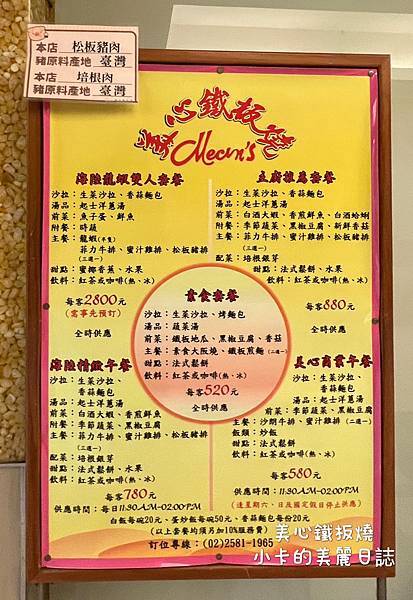 本店 松板豬肉
豬原料產地 臺灣
本店 培根肉
豬原料產地 臺灣
美心鐵板燒
Mecin's
海陸龍蝦雙人套餐
沙拉：生菜沙拉、香蒜麵包
湯品：起士洋蔥湯
前菜：魚子蛋、鮮魚
附餐：時蔬
主餐：龍蝦(半隻)
菲力牛排、蜜汁雞排、松板豬排
(三選一)
甜點：蜜椰香蕉、水果
飲料：紅茶或咖啡(熱、冰)
每客2800元
(需事先預訂)
全時供應
主廚推薦套餐
沙拉：生菜沙拉、香蒜麵包
湯品：起士洋蔥湯
前菜：白酒大蝦、香煎鮮魚、白酒蛤蜊
附餐：季節蔬菜、黑椒豆腐、新鮮香菇
主餐：菲力牛排、蜜汁雞排、松板豬排
(三選一)
配菜：培根銀芽
甜點：法式鬆餅、水果
飲料：紅茶或咖啡(熱、冰)
每客880元
全時供應
素食套餐
沙拉：生菜沙拉、烤麵包
湯品：蔬菜湯
前菜：鐵板地瓜、黑椒豆腐、香菇
主餐：素食大阪燒、鐵板煎麵(二選一)
甜點：法式鬆餅
飲料：紅茶或咖啡(熱、冰)
每客520元
全時供應
海陸精緻午餐
沙拉：生菜沙拉、
香蒜麵包
湯品：起士洋蔥湯
前菜：白酒大蝦、香煎鮮魚
附餐：季節蔬菜、黑椒豆腐
主餐：菲力牛排、蜜汁雞排、松板豬排
(三選一)
配菜：培根銀芽
甜點：法式鬆餅、水果
飲料：紅茶或咖啡(熱、冰)
每客780元
供應時間：每日11:30AM-02:00PM
美心商業午餐
沙拉：生菜沙拉、
香蒜麵包
湯品：起士洋蔥湯
前菜：季節時蔬、黑椒豆腐
主餐：沙朗牛排、蜜汁雞排(二選一)
飯類：炒飯
甜點：法式鬆餅
飲料：紅茶或咖啡(熱、冰)
每客580元
供應時間：11:30AM-02:00PM
(逢星期六、日及國定假日停止供應)
白飯每碗20元、蛋炒飯每碗50元、香蒜麵包每份20元
(以上套餐均須另加10%服務費)
訂位專線：(02)2581-1965
美心鐵板燒
小卡的美麗日誌